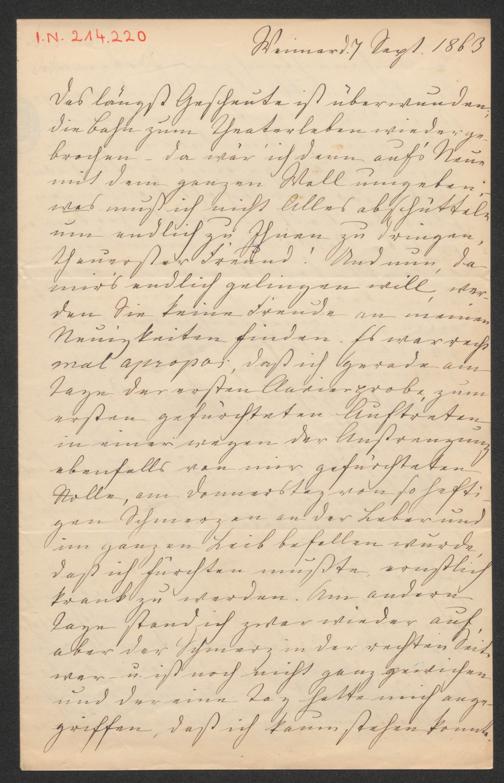 I.N. 214.220
Weimar d. 7 Sept. 1863
Das längst Gescheute ist überwunden,
die Bahn zum Theaterleben wieder ge-
brochen – da wär' ich denn auf's Neue
mit dem ganzen Wall umgeben.
was muß ich nicht Alles abschütteln
um endlich zu Ihnen zu dringen,
theuerster Freund! Und nun, da
mir's endlich gelingen will, wer-
den Sie keine Freude an meinen
Neuigkeiten finden. Es war recht
mal apropos, daß ich gerade am
Tage der ersten Clavierprobe zum
ersten gefürchteten Auftreten
in einer wegen der Anstrengung
ebenfalls von mir gefürchteten
Rolle, am Donnerstag von so hefti-
gen Schmerzen an der Leber und
im ganzen Leib befallen wurde,
daß ich fürchten mußte, ernstlich
krank zu werden. Am andern
Tage stand ich zwar wieder auf,
aber der Schmerz in der rechten Seite
war u. ist noch nicht ganz gewichen
und der eine Tag hatte mich ange-
griffen, daß ich kaum stehen konnte.